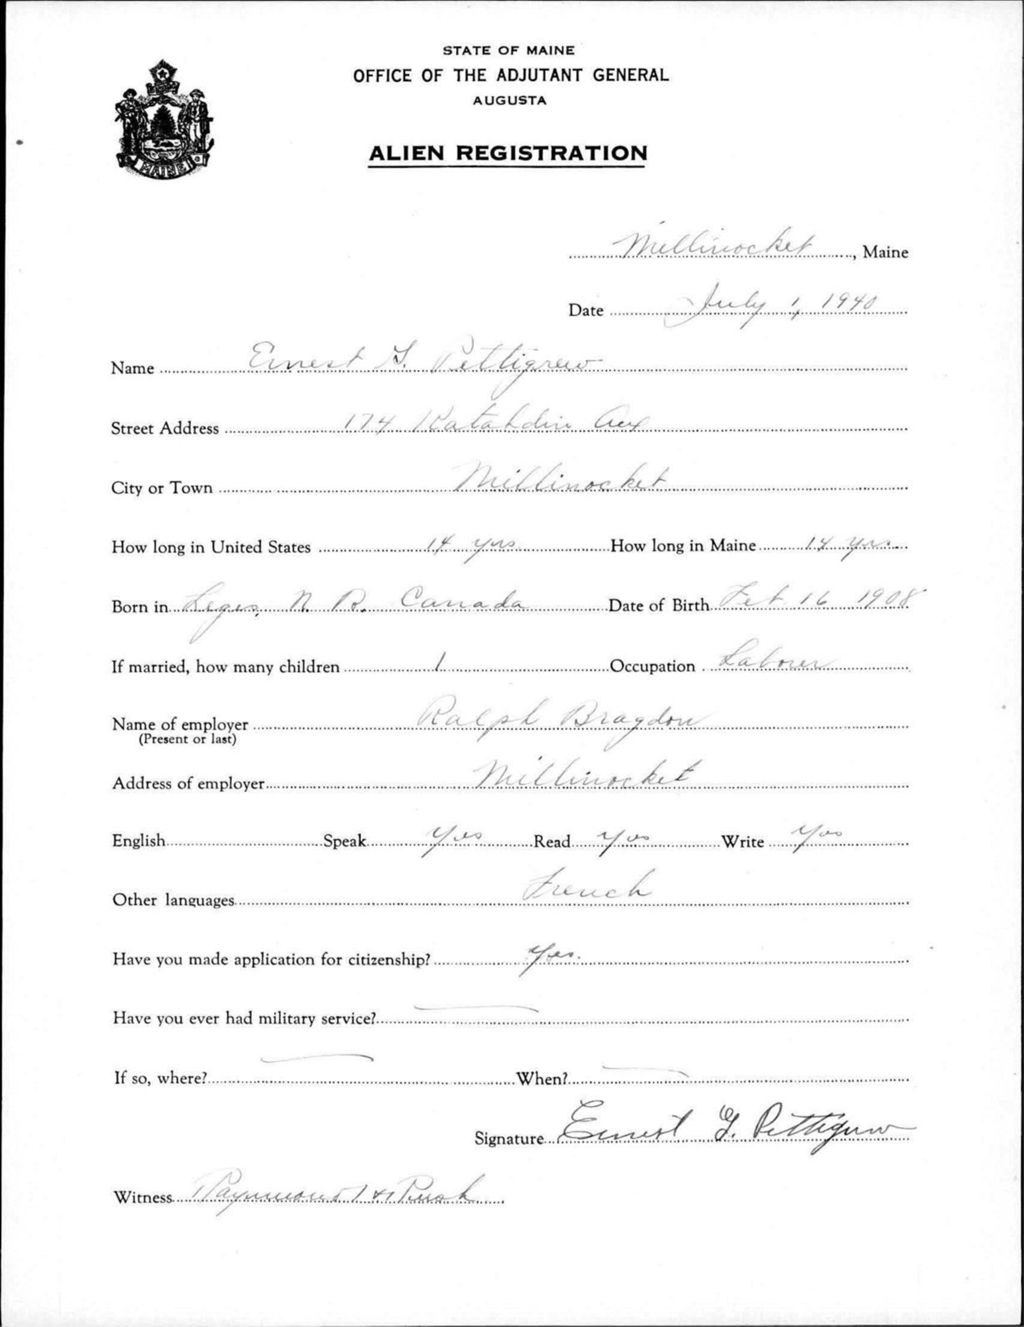 STATE OF MAINE
OFFICE OF THE ADJUTANT GENERAL
AUGUSTA
ALIEN REGISTRATION
MAINE
Millinocket, Maine
Date July 1, 1940
Name Ernest G. Pettigrew
Street Address 174 Katahdin Ave
City or Town Millinocket
How long in United States 14 yrs How long in Maine 14 yrs.
Born in N. B. Canada Date of Birth Feb 16 1908
If married, how many children 1 Occupation Laborer
Name of employer Ralph Bragdon
(Present or last)
Address of employer Millinocket
English Speak Yes Read Yes Write Yes
Other languages French
Have you made application for citizenship? Yes.
Have you ever had military service? —
If so, where? — When? —
Signature Ernest G. Pettigrew
Witness Raymond H Rush